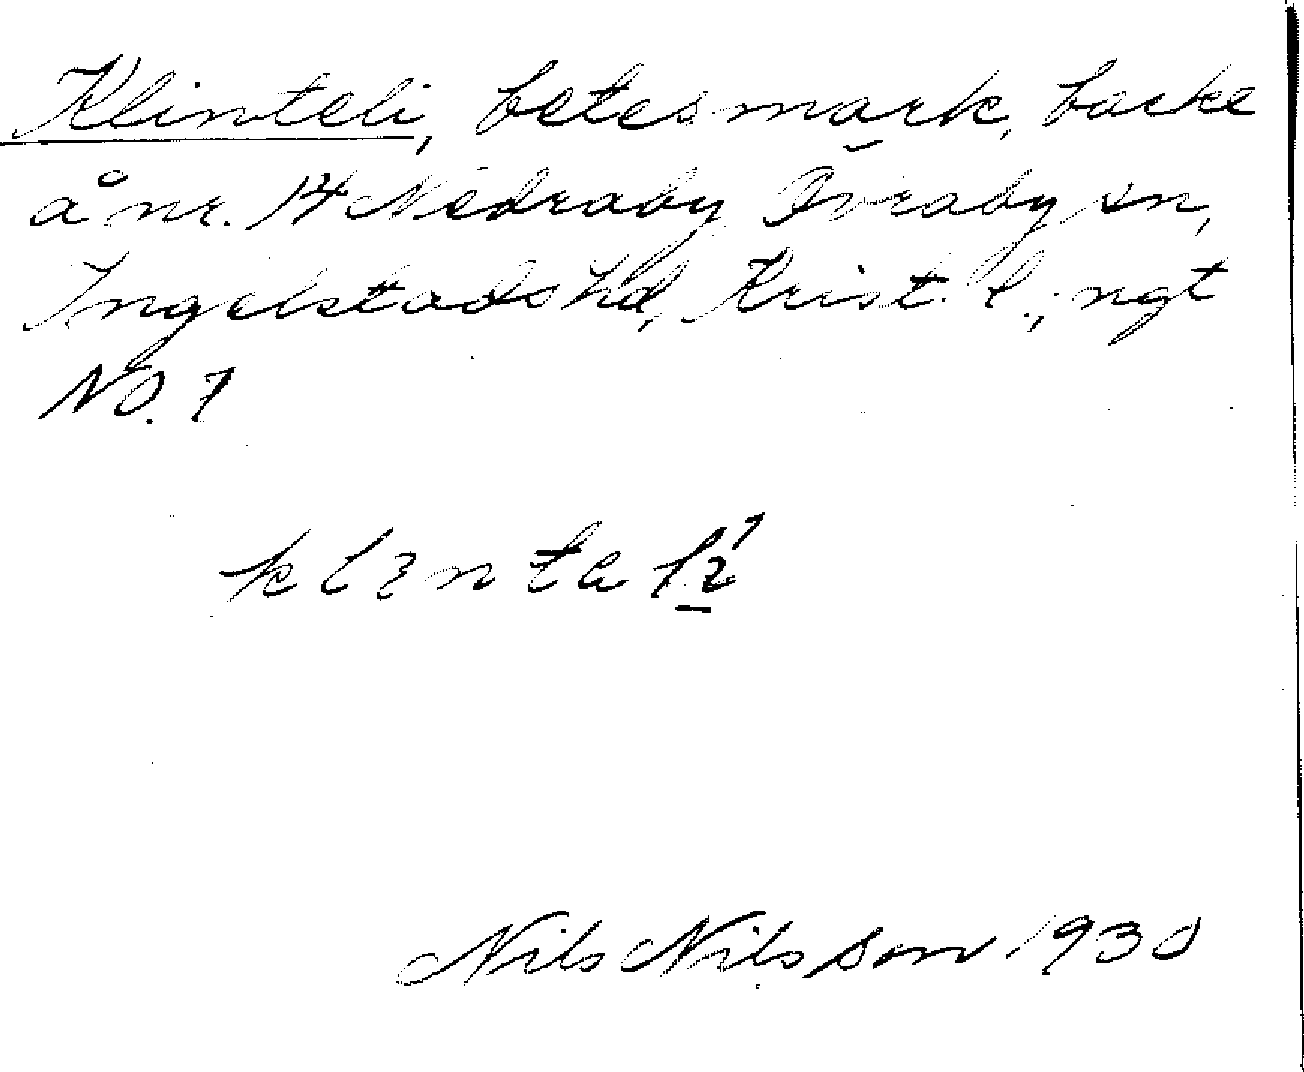 Klinteli, betesmark, backe
å nr. 14 Nedraby Övraby sn,
Ingelstads hd, Krist. l., ngt
NO. 7
Nils Nilsson 1930